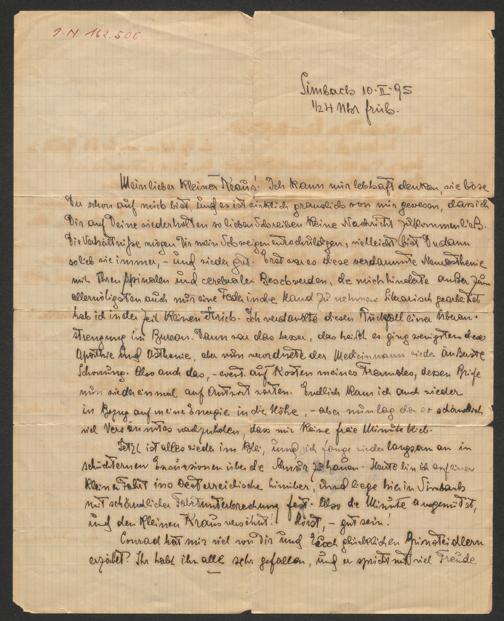 J.N. 162.506
Simbach 10-II-95
1/24 Uhr früh.
Mein lieber kleiner Kraus! Ich kann mir lebhaft denken, wie böse
Du schon auf mich bist, und es ist wirklich grauslich von mir gewesen, dass ich
Dir auf Deine wiederholten so lieben Schreiben keine Nachricht zukommen ließ.
Die Verhältnisse mögen Dir mein Schweigen entschuldigen, vielleicht bist Du dann
so lieb wie immer, – und wieder gut. Erst war es diese verdammte Neurasthenie
mit ihren spinalen und cerebralen Beschwerden, die mich hinderte außer zum
allernötigsten auch nur eine Feder in die Hand zu nehmen. Literarisch gearbeitet
hab ich in der Zeit keinen Strich. Ich verdankte diesen Rückfall einer Überan-
strengung im Bureau. Dann war das besser, das heißt es ging wenigstens
Apathie und Asthenie, aber nun verordnete der Medicinmann wieder äußerste
Schonung. Also auch das, – auf Kosten meiner Freunde, deren Briefe
nun wieder einmal auf Antwort warten. Endlich kam ich auch wieder
in Bezug auf meine Energie in die Höhe, – aber nun lag da so schändlich
viel Versäumtes nachzuholen, dass mir keine freie Minute blieb.
Jetzt ist alles wieder im Blei, und ich fange wieder langsam an in
schüchternen Excursionen über die zu hauen. Heute bin ich auf einer
kleinen Fahrt ins Oesterreichische hinüber, und liege hier in Simbach
mit schändlicher Fahrtunterbrechung fest. Also die Minute ausgenützt,
und den kleinen Kraus versöhnt. Hörst, – gut sein!
Conrad hat mir viel von Dir und Euch glücklichen
erzählt. Ihr habt ihm alle sehr gefallen, und er spricht mit viel Freude